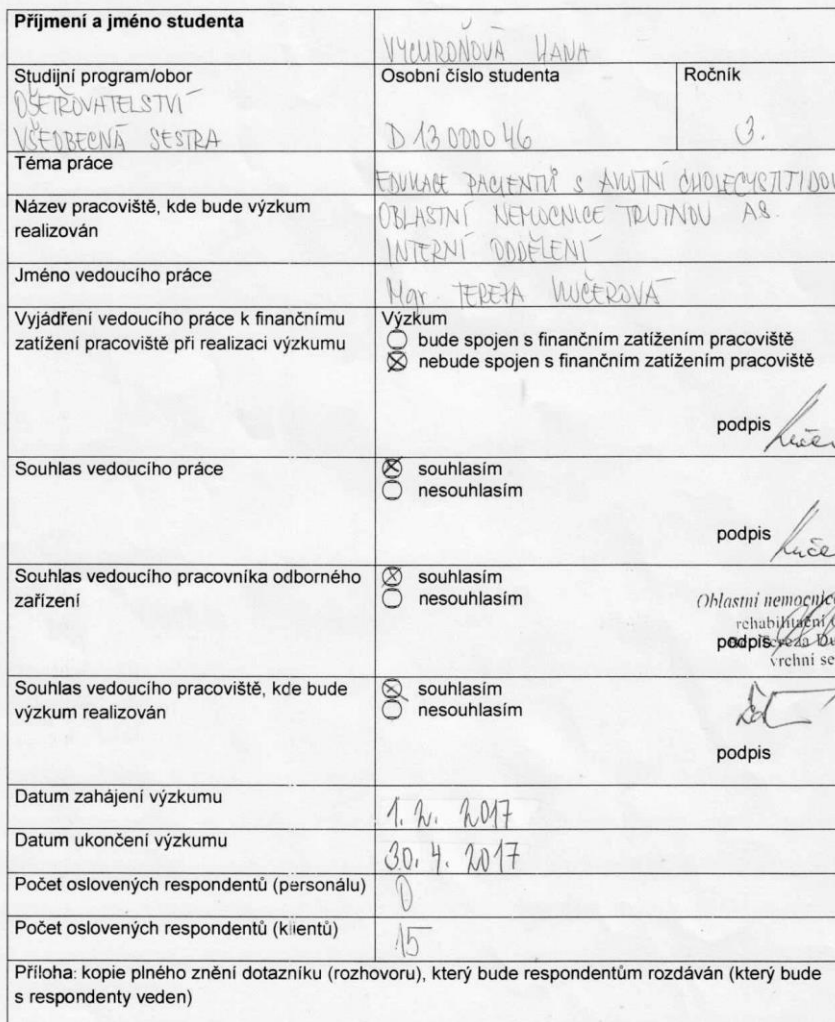 Příjmení a jméno studenta
VYCHROŇOVÁ HANA
Studijní program/obor
OŠETŘOVATELSTVÍ
VŠEOBECNÁ SESTRA
Osobní číslo studenta
D 13 0000 46
Ročník
3.
Téma práce
EDUKACE PACIENTŮ S AKUTNÍ CHOLECYSTITIDOU
Název pracoviště, kde bude výzkum
realizován
OBLASTNÍ NEMOCNICE TRUTNOV AS.
INTERNÍ ODDĚLENÍ
Jméno vedoucího práce
Mgr. TEREZA KUČEROVÁ
Vyjádření vedoucího práce k finančnímu
zatížení pracoviště při realizaci výzkumu
Výzkum
bude spojen s finančním zatížením pracoviště
nebude spojen s finančním zatížením pracoviště
podpis
Souhlas vedoucího práce
souhlasím
nesouhlasím
podpis
Souhlas vedoucího pracovníka odborného
zařízení
souhlasím
nesouhlasím
Oblastní nemocnice
rehabilitační
podpis Tereza Du
vrchní se
Souhlas vedoucího pracoviště, kde bude
výzkum realizován
souhlasím
nesouhlasím
podpis
Datum zahájení výzkumu
1. 2. 2017
Datum ukončení výzkumu
30. 4. 2017
Počet oslovených respondentů (personálu)
0
Počet oslovených respondentů (klientů)
15
Příloha: kopie plného znění dotazníku (rozhovoru), který bude respondentům rozdáván (který bude
s respondenty veden)